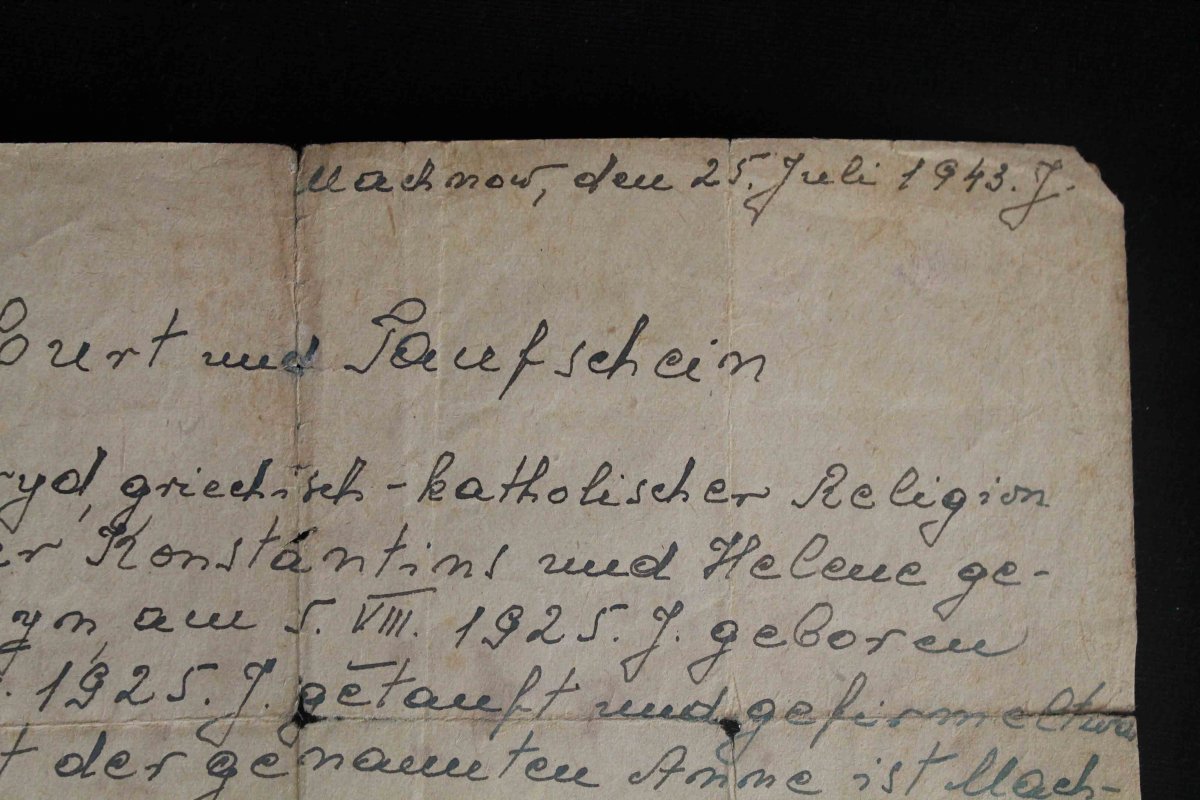 Machnow, den 25. Juli 1943. J.
ourt und Taufschein
ryd, griechisch-katholischer Religion
er Konstantins und Helene ge-
yn, am 5. VIII. 1925. J. geboren
. 1925. J. getauft und gefirmelt wa
t der genannten Anne ist Mach-